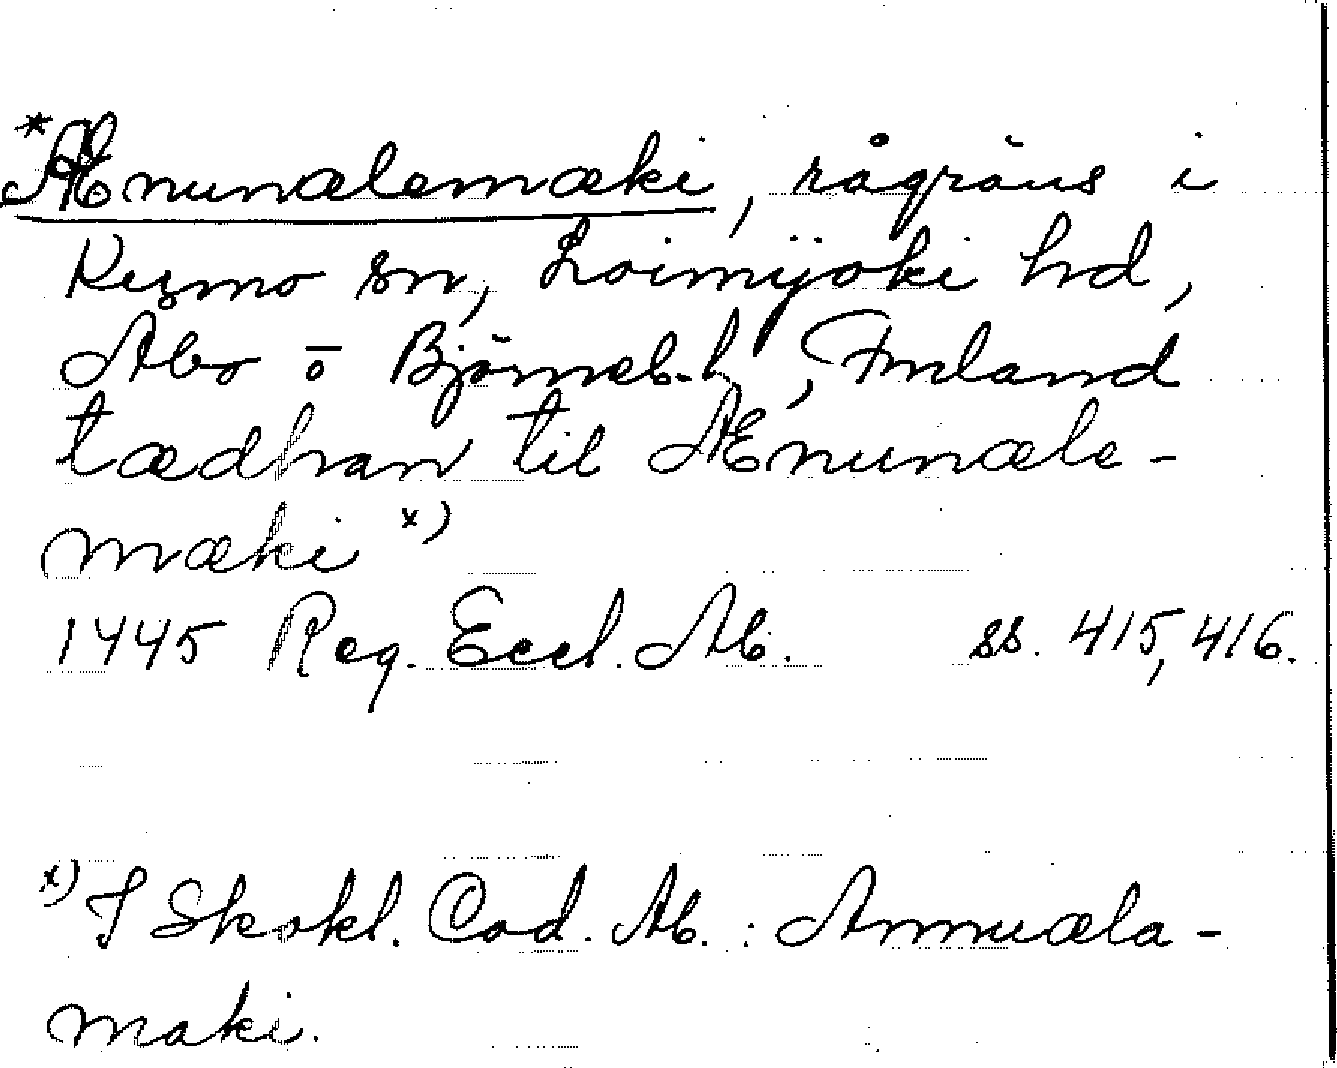 *Ænunælemæki, rågräns i
Resmo sn, Loimijoki hd,
Åbo o Björneb. l, Finland
tædhan til Ænunæle-
mæki x)
1445 Reg. Eccl. Ab. ss. 415, 416.
x) I Skokl. Cod. Ab.: Annuæla-
maki.